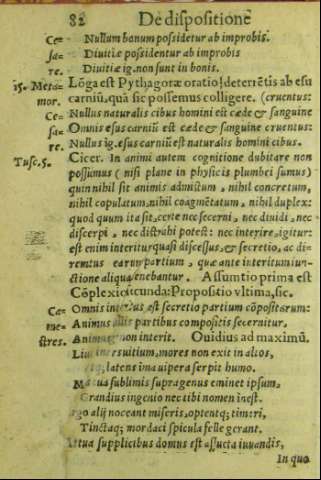 82 De dispositione
Ce- Nullum bonum possidetur ab improbis.
sa- Divitiæ possidentur ab improbis
re. Divitiæ ig. non sunt in bonis.
15. Meta- Lõga est Pythagoræ oratio! deterrẽtis ab esu
mor. carniũ, quã sic possemus colligere. (cruentus:
Ce- Nullus naturalis cibus homini est cæde & sanguine
sa- Omnis esus carniũ est cæde & sanguine cruentus:
re. Nullus ig. esus carniũ est naturalis homini cibus.
Tusc. 5. Cicer. In animi autem cognitione dubitare non
possumus (nisi plane in physicis plumbei sumus)
quin nihil sit animis admistum, nihil concretum,
nihil copulatum, nihil coagmẽtatum, nihil duplex:
quod quum ita sit, certe nec secerni, nec dividi, nec
discerpi, nec distrahi potest: nec interire, igitur:
est enim interitus quasi discessus, & secretio, ac di-
remtus earum partium, quæ ante interitum iun-
ctione aliqua tenebantur. Assumtio prima est
Cõplexio secunda: Propositio vltima, sic.
Ca- Omnis interitus est secretio partium cõpositarum:
me- Animus nullis partibus compositis secernitur,
stres. Animus non interit. Ouidius ad maximũ.
Liuor, iners uitium, mores non exit in altos,
latens ima uipera serpit humo.
sublimis supra genus eminet ipsum,
Grandius ingenio nec tibi nomen inest.
Ergo alij noceant miseris, optentq; timeri,
Tinctaq; mordaci spicula felle gerant.
At tua supplicibus domus est assueta iuuandis,
In quo